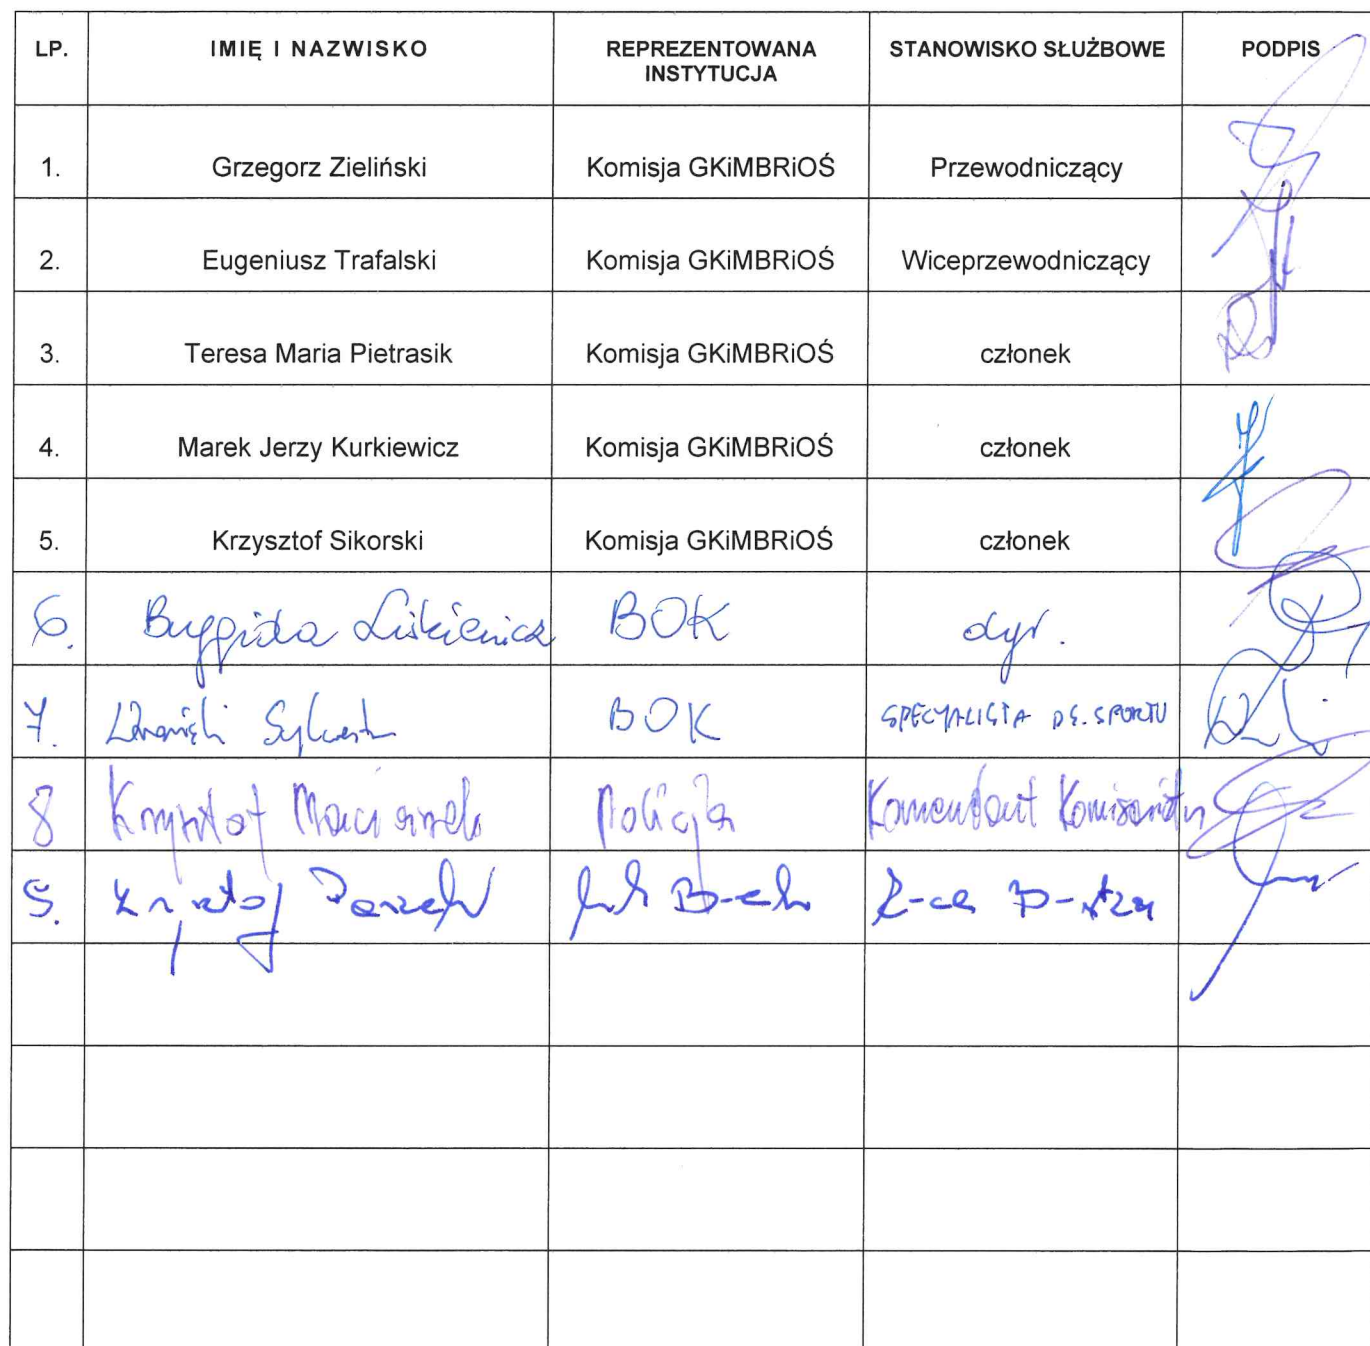 LP. IMIĘ I NAZWISKO REPREZENTOWANA INSTYTUCJA STANOWISKO SŁUŻBOWE PODPIS
1. Grzegorz Zieliński Komisja GKiMBRiOŚ Przewodniczący
2. Eugeniusz Trafalski Komisja GKiMBRiOŚ Wiceprzewodniczący
3. Teresa Maria Pietrasik Komisja GKiMBRiOŚ członek
4. Marek Jerzy Kurkiewicz Komisja GKiMBRiOŚ członek
5. Krzysztof Sikorski Komisja GKiMBRiOŚ członek
6. Brygida BOK dyr.
7. BOK SPECJALISTA DS. SPORTU
8 Krzysztof Policja Komendant Komisariatu
9. Krzysztof Z-ca B-rza